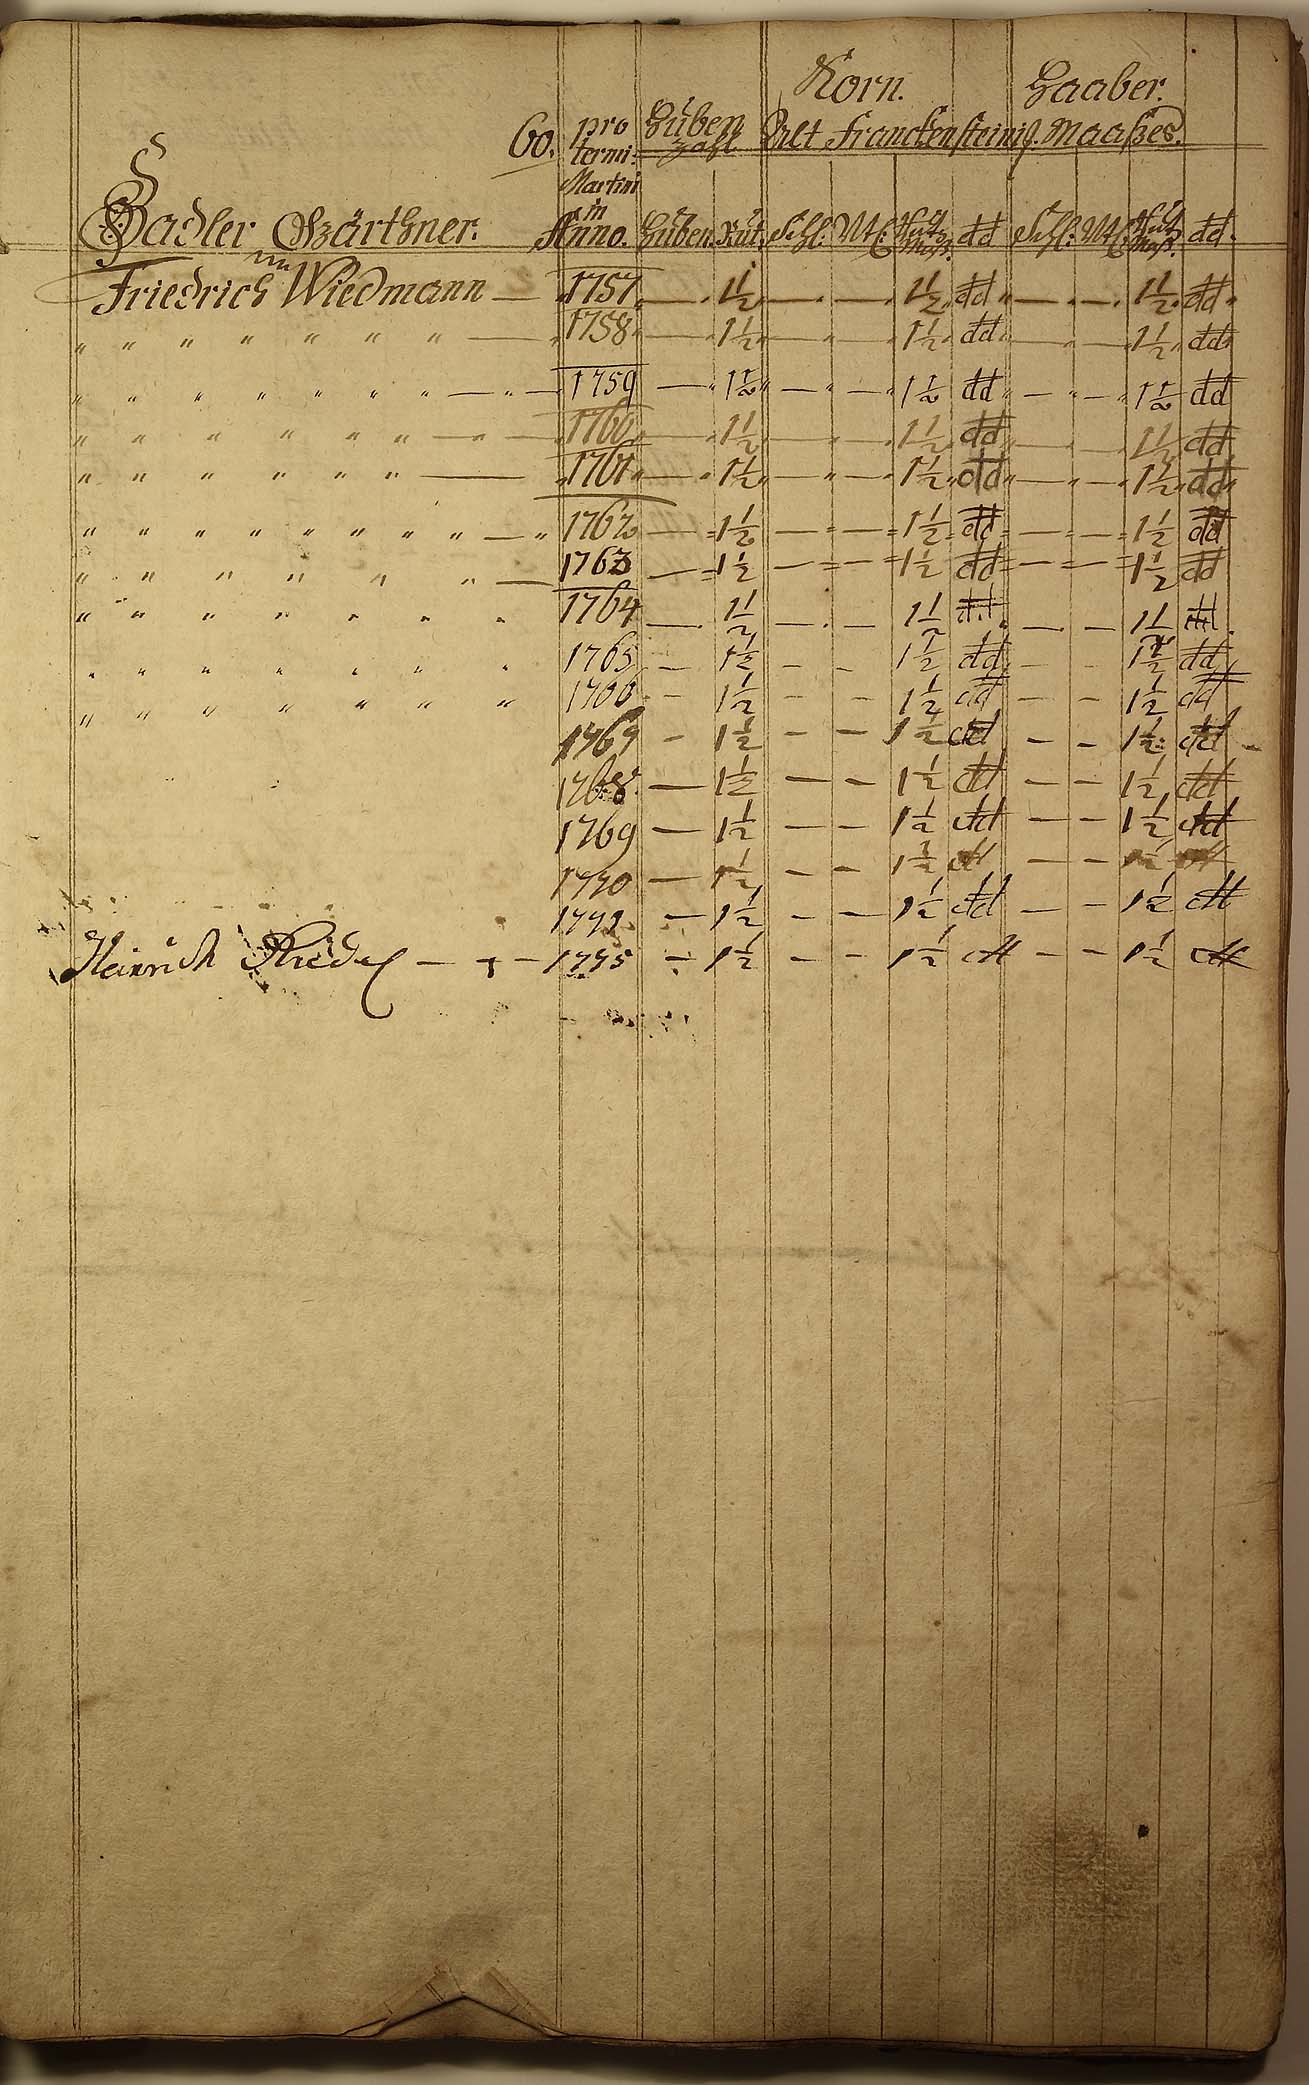 Korn. Haaber.
60. pro termi: Martini in Anno. Huben Zahl Alt Franckensteinis. Maaßes.
Sadler Gärthner. Huben. Rut. Schl. Vtl. dd Schl. Vtl. dd.
Friedrich Wiedmann — 1757 — 1½ — — 1½ dd — — 1½ dd
" " " " " " " — 1758 — 1½ — — 1½ dd — — 1½ dd
" " " " " " " — " — 1759 — 1½ — — 1½ dd — — 1½ dd
" " " " " " — " — 1760 — 1½ — — 1½ dd — — 1½ dd
" " " " " " — 1761 — 1½ — — 1½ dd — — 1½ dd
" " " " " " " " — " 1762 — 1½ — — 1½ dd — — 1½ dd
" " " " " " — 1763 — 1½ — — 1½ dd — — 1½ dd
" " " " " " " 1764 — 1½ — — 1½ dd — — 1½ dd
" " " " " " " 1765 — 1½ — — 1½ dd — — 1½ dd
" " " " " " " 1766 — 1½ — — 1½ dd — — 1½ dd
1767 — 1½ — — 1½ dd — — 1½ dd
1768 — 1½ — — 1½ dd — — 1½ dd
1769 — 1½ — — 1½ dd — — 1½ dd
1770 — 1½ — — 1½ dd — — 1½ dd
— 1½ — — 1½ dd — — 1½ dd
Heinrich Riedel — — 1775 — 1½ — — 1½ dd — — 1½ dd